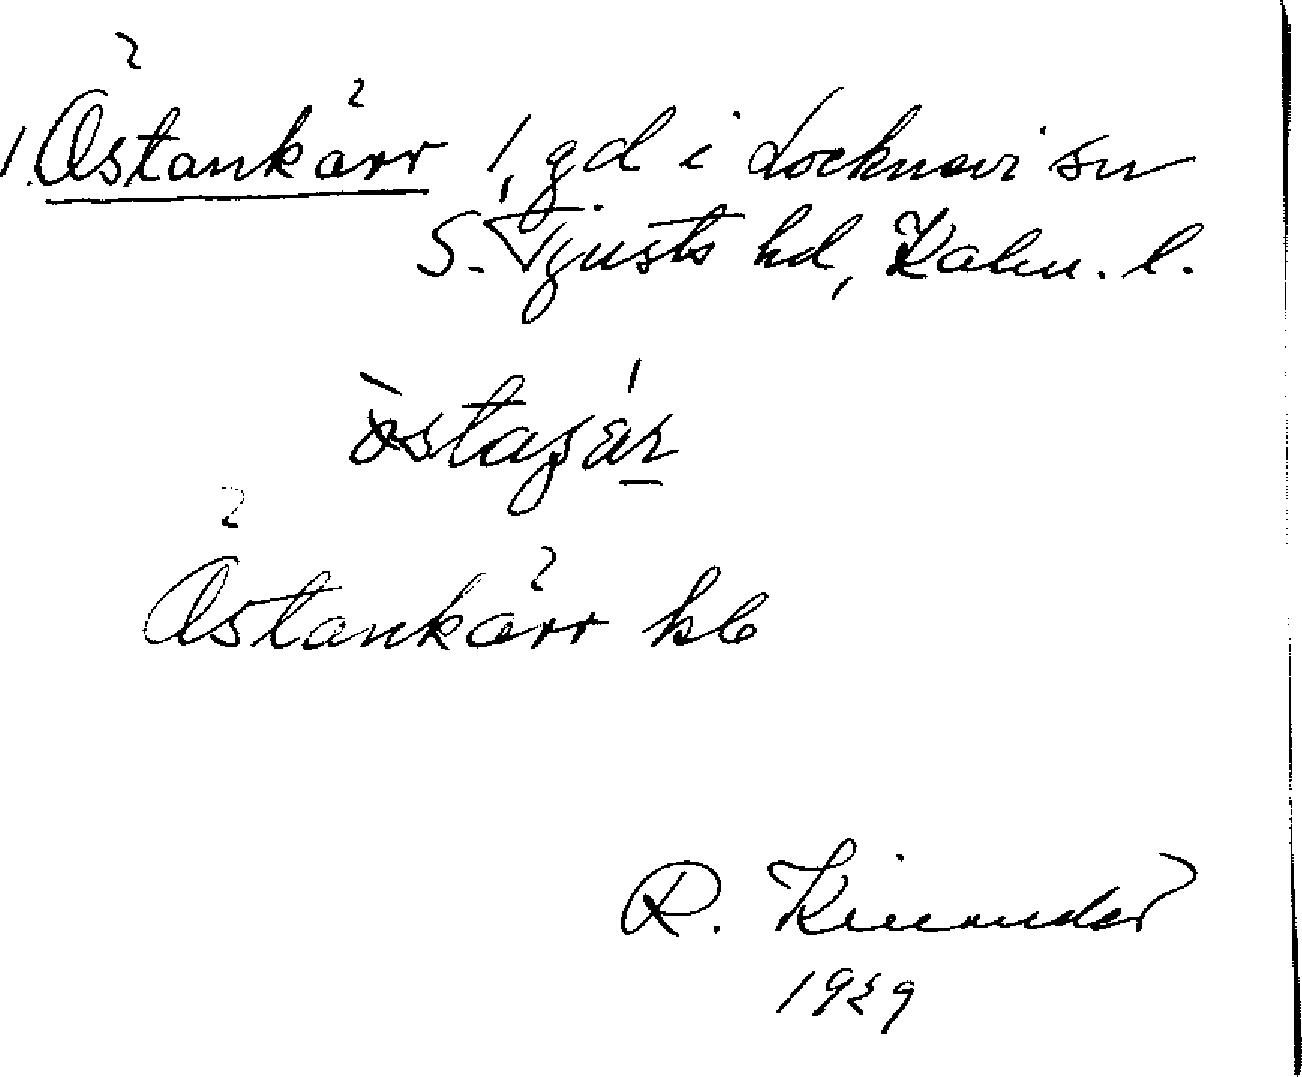 1. Östankärr 1, gd i Locknevi sn
S. Tjusts hd, Kalm. l.
Östankärr hb
R. Kinander
1929